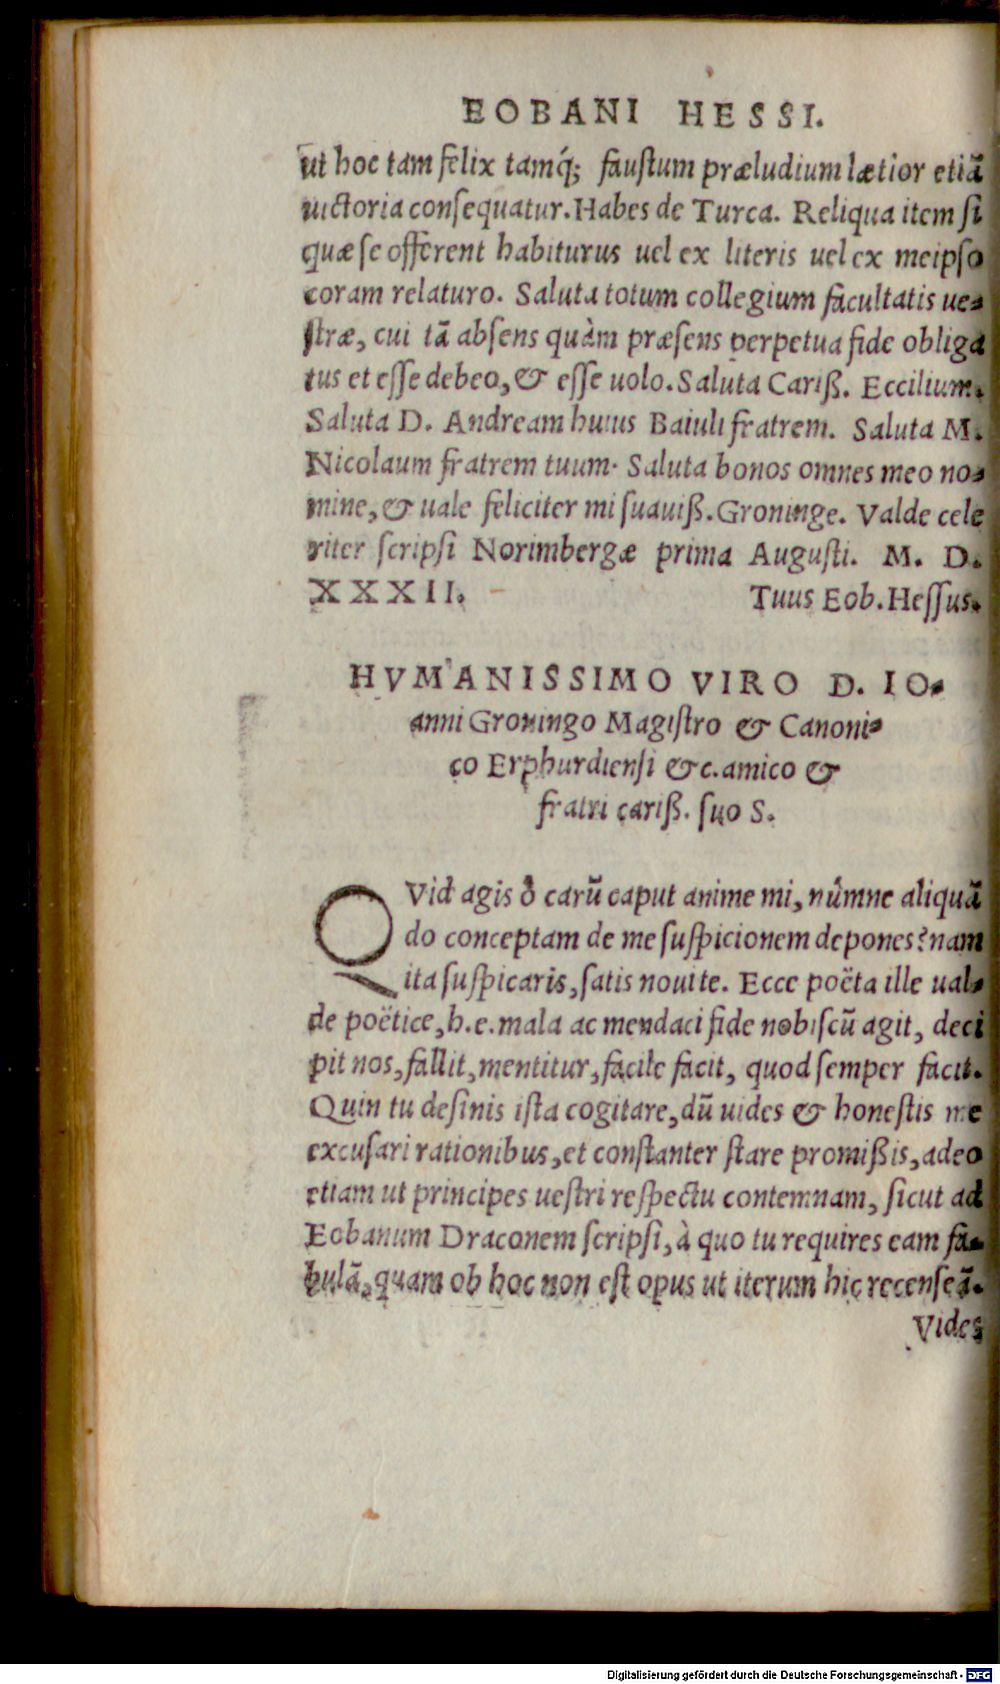 EOBANI HESSI.
ut hoc tam felix tamq́; faustum præludium lætior etiã
uictoria consequatur. Habes de Turca. Reliqua item si
quæ se offerent habiturus uel ex literis uel ex meipso
coram relaturo. Saluta totum collegium facultatis ue-
stræ, cui tã absens quàm præsens perpetua fide obliga
tus et esse debeo, & esse uolo. Saluta Cariß. Eccilium.
Saluta D. Andream huius Baiuli fratrem. Saluta M.
Nicolaum fratrem tuum. Saluta bonos omnes meo no-
mine, & uale feliciter mi suauiß. Groninge. Valde cele
riter scripsi Norimbergæ prima Augusti. M. D.
XXXII. Tuus Eob. Hessus.
HVMANISSIMO VIRO D. IO-
anni Groningo Magistro & Canoni-
co Erphurdiensi &c. amico &
fratri cariß. suo S.
QVid agis ô carũ caput anime mi, nũmne aliquã
do conceptam de me suspicionem depones? nam
ita suspicaris, satis noui te. Ecce poëta ille ual-
de poëtice, h.e. mala ac mendaci fide nobiscũ agit, deci
pit nos, fallit, mentitur, facile facit, quod semper facit.
Quin tu desinis ista cogitare, dũ uides & honestis me
excusari rationibus, et constanter stare promißis, adeo
etiam ut principes uestri respectu contemnam, sicut ad
Eobanum Draconem scripsi, à quo tu requires eam fa-
bulã, quam ob hoc non est opus ut iterum hic recenseã.
Vides
Digitalisierung gefördert durch die Deutsche Forschungsgemeinschaft - DFG